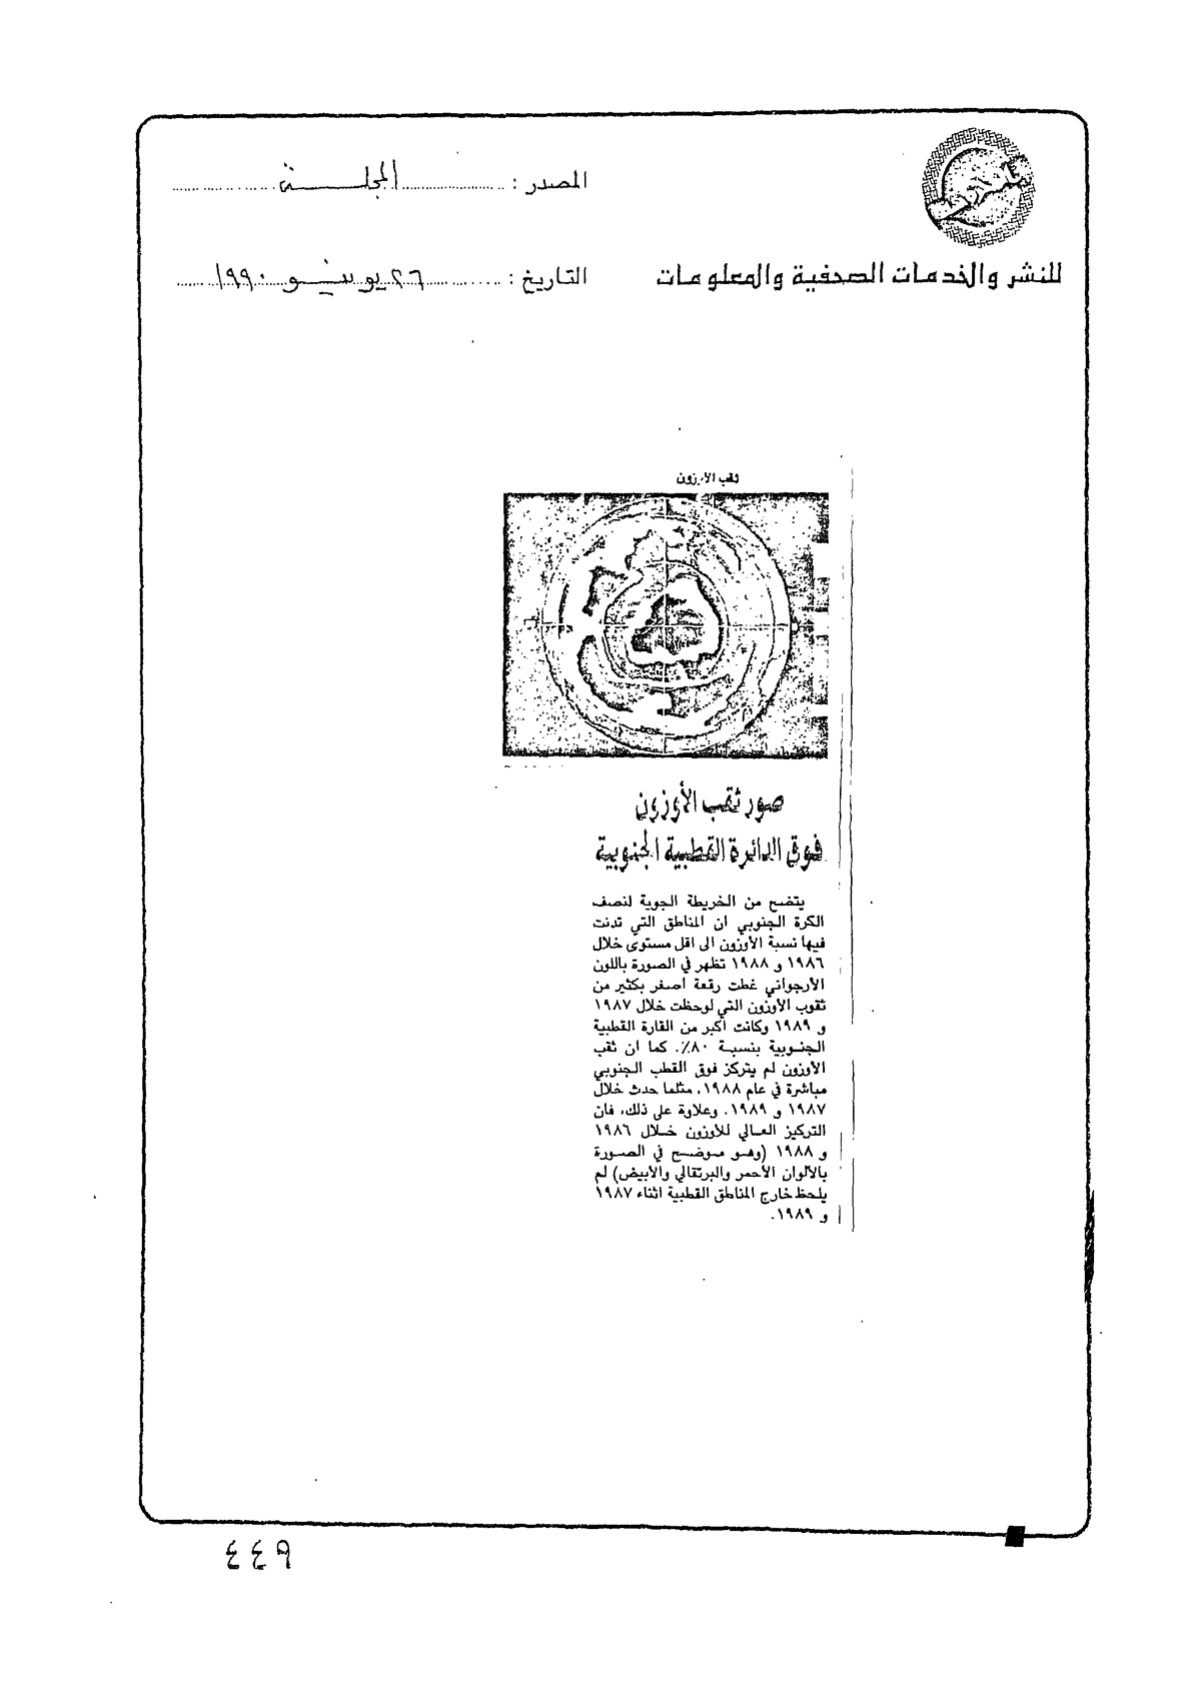 المصدر : المجلة
للنشر والخدمات الصحفية والمعلومات
التاريخ : ٢٦ يونيو ١٩٩٠
ثقب الأوزون
صور ثقب الأوزون
فوق الدائرة القطبية الجنوبية
يتضح من الخريطة الجوية لنصف
الكرة الجنوبي ان المناطق التي تدنت
فيها نسبة الأوزون الى اقل مستوى خلال
١٩٨٦ و ١٩٨٨ تظهر في الصورة باللون
الأرجواني غطت رقعة أصغر بكثير من
ثقوب الأوزون التي لوحظت خلال ١٩٨٧
و ١٩٨٩ وكانت أكبر من القارة القطبية
الجنوبية بنسبة ٨٠٪. كما ان ثقب
الأوزون لم يتركز فوق القطب الجنوبي
مباشرة في عام ١٩٨٨، مثلما حدث خلال
١٩٨٧ و ١٩٨٩. وعلاوة على ذلك، فان
التركيز العالي للأوزون خلال ١٩٨٦
و ١٩٨٨ (وهو موضح في الصورة
بالألوان الأحمر والبرتقالي والأبيض) لم
يلحظ خارج المناطق القطبية اثناء ١٩٨٧
و ١٩٨٩.
٤٤٩